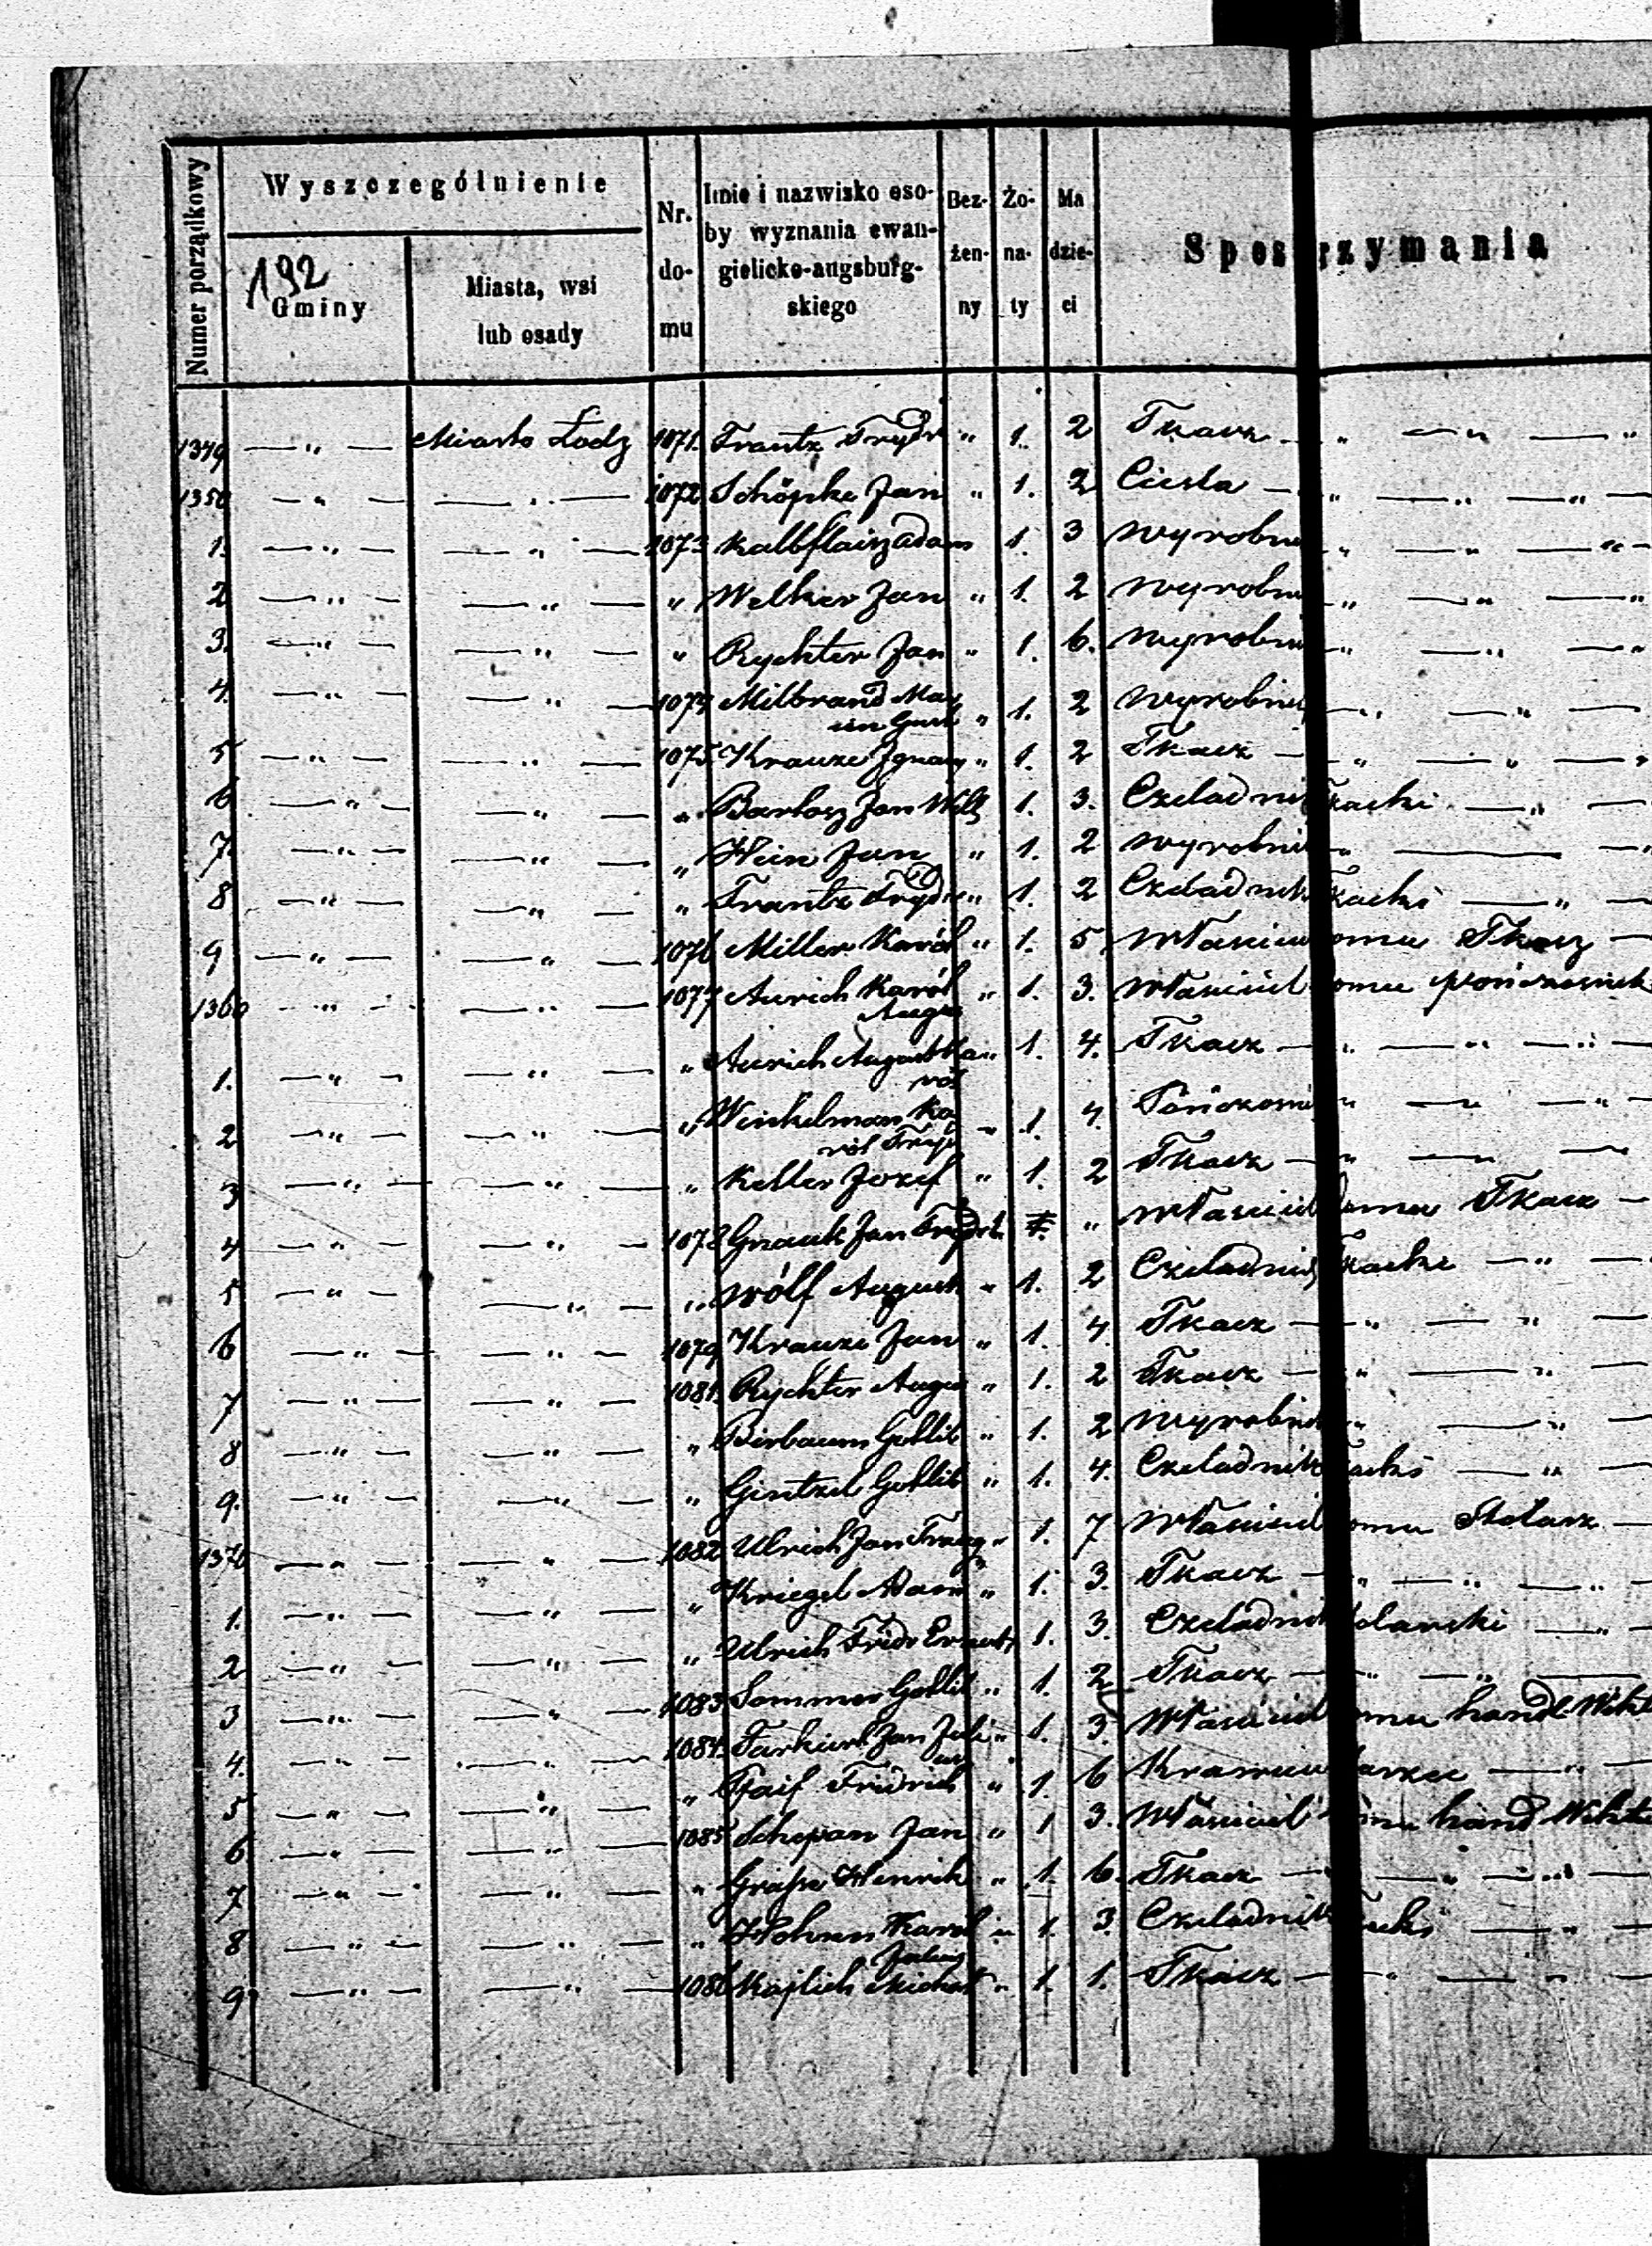 Numer porządkowy
Wyszczególnienie
192
Gminy
Miasta, wsi
lub osady
Nr.
do-
mu
Imie i nazwisko oso-
by wyznania ewan-
gielicko-augsburg-
skiego
Bez-
żen-
ny
Żo-
na-
ty
Ma
dzie-
ci
Spos rzymania
1349 — " — Miasto Łodz 1071. Frantz Frydr " 1. 2 Tkacz — " — " —
1350 — " — — " — 1072 Schöpke Jan " 1. 2 Ciesla — " — " — " —
1. — " — — " — 1073 Kalbflaisz Adam 1. 3 wyrobni " — " — " —
2 — " — — " — " Welker Jan " 1. 2 wyrobni " — " — "
3. — " — — " — " Rychter Jan " 1. 6. wyrobni " — " — "
4. — " — — " — 1074 Milbrand Mar
cin Gust " 1. 2 wyrobni — " — " —
5 — " — — " — 1075 Krauze Ignacy " 1. 2 Tkacz — " — " — "
6 — " — — " — " Bartosz Jan Wilh 1. 3. Czeladni Tkacki — " —
7. — " — — " — " Hein Jan " 1. 2 wyrobni " — "
8 — " — — " — " Frantz Frydr " 1. 2 Czeladnik Tkacki — " —
9 — " — — " — 1076 Miller Karól " 1. 5. Właściciel omu Tkacz —
1360 — " — — " — 1077 Aurich Karól
Augus " 1. 3. Właściciel omu pończosnik
1. — " — — " — " Aurich August Ka
ról " 1. 4. Tkacz — " — " — " —
2 — " — — " — " Winkelman Ka
ról Fryd " 1. 4. Pończosni " — " —
3 — " — — " — " Keller Jozef " 1. 2 Tkacz — " — " —
4 — " — — " — 1078 Gnauk Jan Frydr 1. " Właściciel omu Tkacz —
5 — " — — " — " Wólf August " 1. 2 Czeladnik Tkacki — " —
6 — " — — " — 1079 Krauze Jan " 1. 4. Tkacz — " — " —
7 — " — — " — 1081. Rychter Augus " 1. 2 Tkacz — " — " —
8 — " — — " — " Birbaum Gottlib " 1. 2 wyrobni " — " —
9. — " — — " — " Gintzel Gottlib " 1. 4. Czeladnik acki — " —
1370 — " — — " — 1082 Ulrich Jan Traug " 1. 7 Właściciel omu Stolarz —
1. — " — — " — " Kriegel Adam " 1. 3. Tkacz — " — " — "
2 — " — — " — " Ulrich Fridr Ernest 1. 3. Czeladnik tolarski — " —
3 — " — — " — 1083 Sommer Gottlib " 1. 2 Tkacz — " — " —
4. — " — — " — 1084. Jan Juli " 1. 3. Właściciel omu handl Wikt
5 — " — — " — " Fridrich " 1. 6 Krawiec — " —
6 — " — — " — 1085 Schepan Jan " 1 3. Właściciel omu hand Wikt
7 — " — — " — " Grasse Henrik " 1. 6. Tkacz — " — " —
8 — " — — " — " Karól
Julius " 1. 3. Czeladnik acki — " —
9. — " — — " — 1086 Kajlich Michał " 1. 1. Tkacz — " — " —